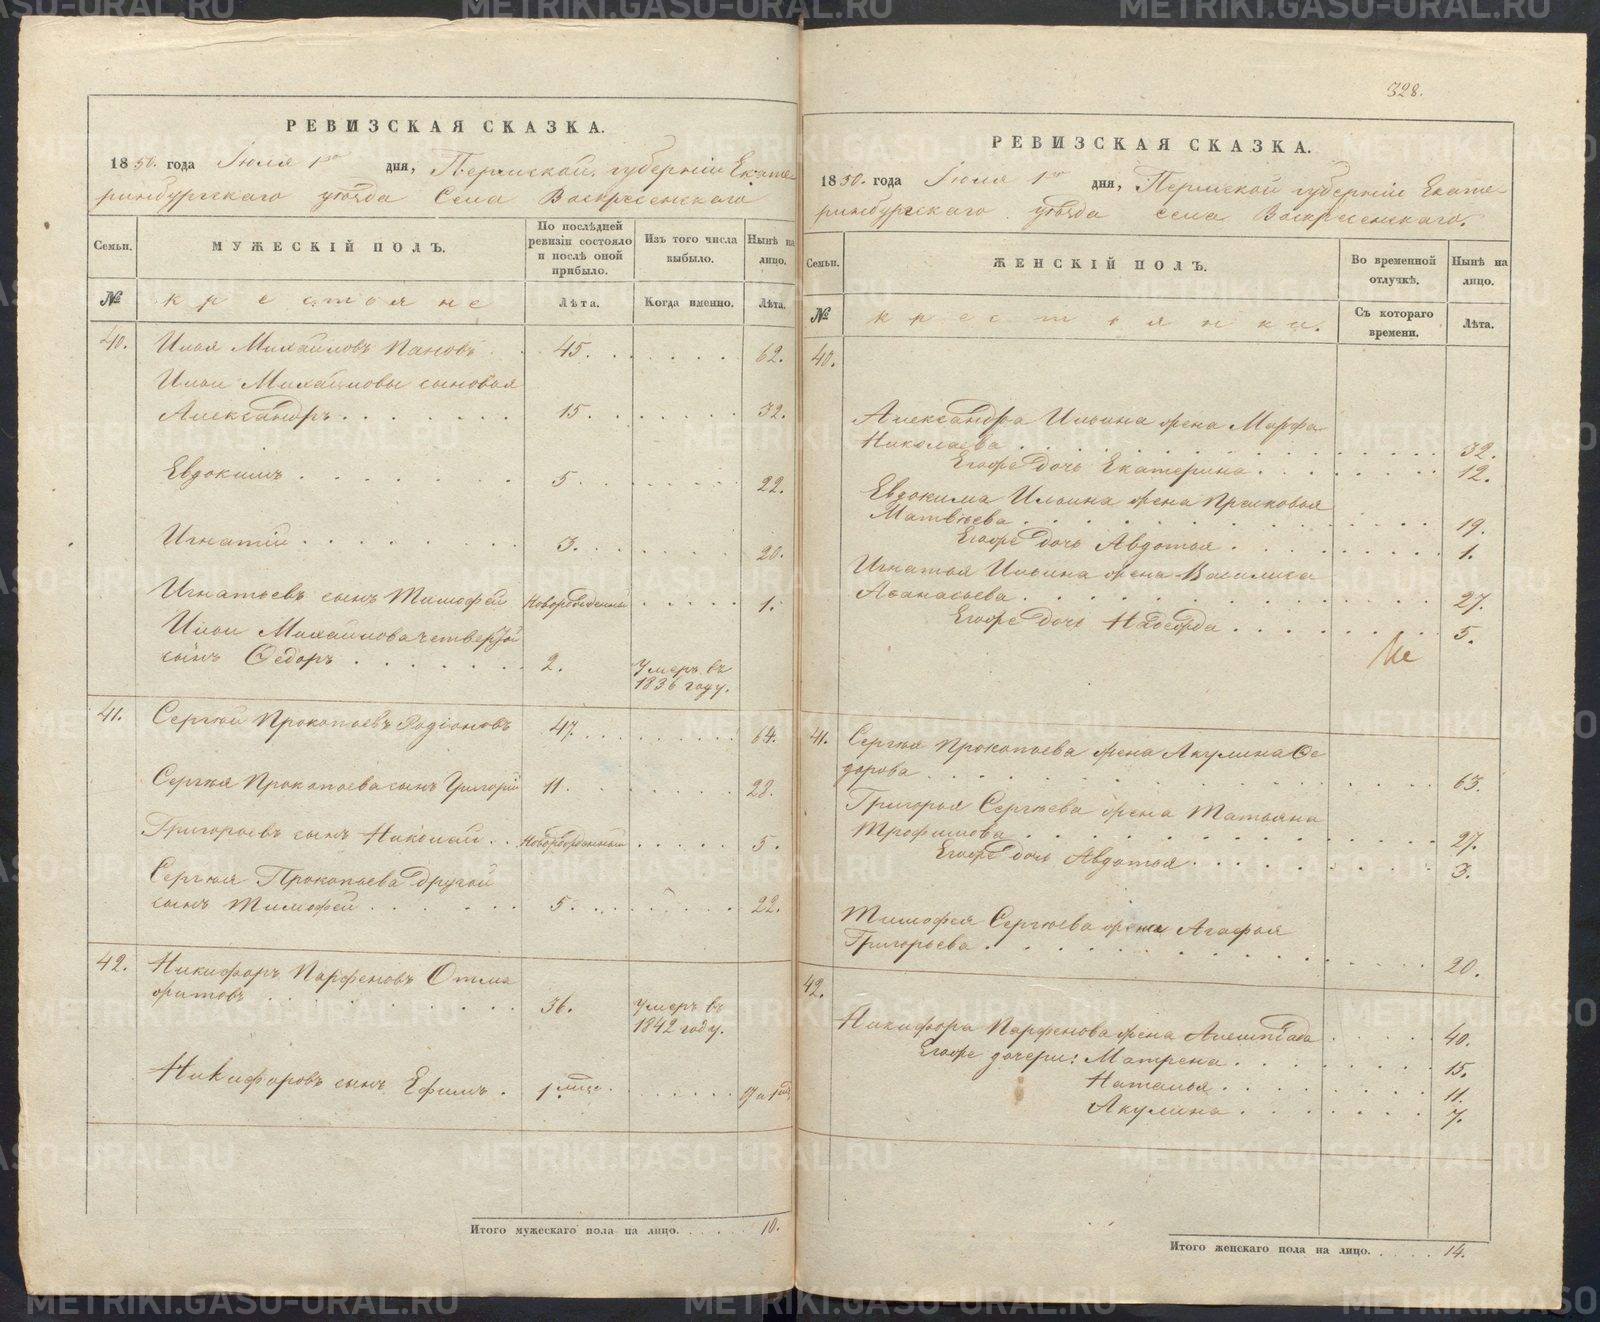 РЕВИЗСКАЯ СКАЗКА.
1850. года Іюля 1го дня, Пермской губерніи Екате
ринбургскаго уѣзда Села Воскресенскаго
Семьи.
МУЖЕСКІЙ ПОЛЪ.
По послѣдней ревизіи состояло и послѣ оной прибыло.
Изъ того числа выбыло.
Нынѣ на лицо.
№
крестьяне
Лѣта.
Когда именно.
Лѣта.
40. Илья Михайловъ Пановъ 45. 62.
Ильи Михайловы сыновья
Александръ 15. 32.
Евдокимъ 5. 22.
Игнатій 3. 20.
Игнатьевъ сынъ Тимофей Новорожденный 1.
Ильи Михайлова четвертой
сынъ Ѳедоръ 2. Умеръ въ
1836 году.
41. Сергѣй Прокопьевъ Родіоновъ 47. 64.
Сергѣя Прокопьева сынъ Григорій 11. 28.
Григорьевъ сынъ Николай Новорожденный 5.
Сергѣя Прокопьева другой
сынъ Тимофей 5. 22.
42. Никифоръ Парфеновъ
36. Умеръ въ
1842 году.
Никифоровъ сынъ Ефимъ 1 17 и 1
Итого мужескаго пола на лицо. 10.
328.
РЕВИЗСКАЯ СКАЗКА.
1850. года Іюля 1го дня, Пермской губерніи Екате
ринбургскаго уѣзда села Воскресенскаго.
Семьи.
ЖЕНСКІЙ ПОЛЪ.
Во временной отлучкѣ.
Нынѣ на лицо.
№
крестьянки.
Съ котораго времени.
Лѣта.
40.
Александра Ильина жена Марфа
Николаева 32.
Егоже дочь Екатерина 12.
Евдокима Ильина жена Прасковья
Матвѣева 19.
Егоже дочь Авдотья 1.
Игнатья Ильина жена Василиса
Аѳанасьева 27.
Егоже дочь 5.
41. Сергѣя Прокопьева жена Акулина Ѳе
дорова 63.
Григорья Сергѣева жена Татьяна
Трофимова 27.
Егоже дочь Авдотья 3.
Тимофея Сергѣева жена Агафья
Григорьева 20.
42.
Никифора Парфенова жена 40.
Егоже дочери: Матрена 15.
Наталья 11.
Акулина 7.
Итого женскаго пола на лицо. 14.
METRIKI.GASO-URAL.RU